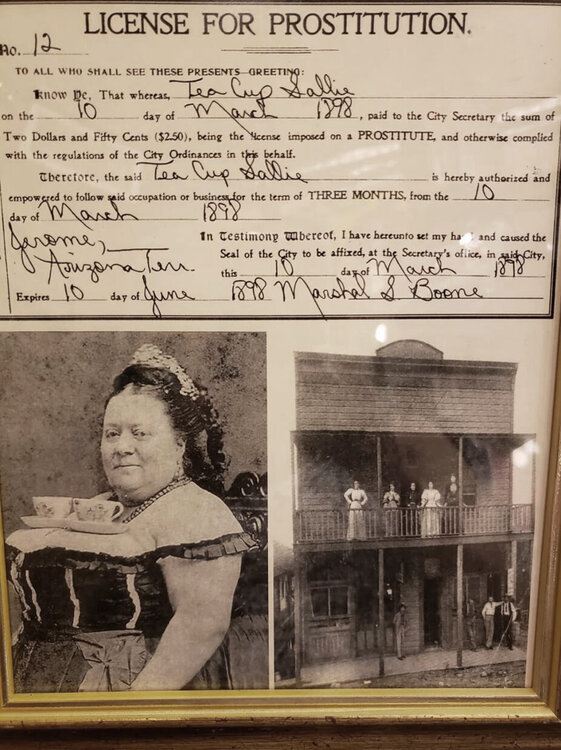 LICENSE FOR PROSTITUTION.
No. 12
TO ALL WHO SHALL SEE THESE PRESENTS GREETING:
Know Ye, That whereas, Tea Cup Sallie
on the 10 day of March 1898, paid to the City Secretary the sum of
Two Dollars and Fifty Cents ($2.50), being the license imposed on a PROSTITUTE, and otherwise complied
with the regulations of the City Ordinances in this behalf.
Therefore, the said Tea Cup Sallie is hereby authorized and
empowered to follow said occupation or business for the term of THREE MONTHS, from the 10
day of March 1898
Jerome, In Testimony Whereof, I have hereunto set my hand and caused the
Arizona Terr. Seal of the City to be affixed, at the Secretary's office, in said City,
this 10 day of March 1898
Expires 10 day of June 1898 Marshal S Boone